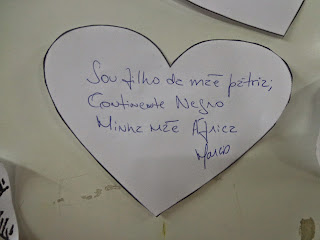 Sou filho da mãe pátria;
Continente Negro
Minha mãe África
Marcos